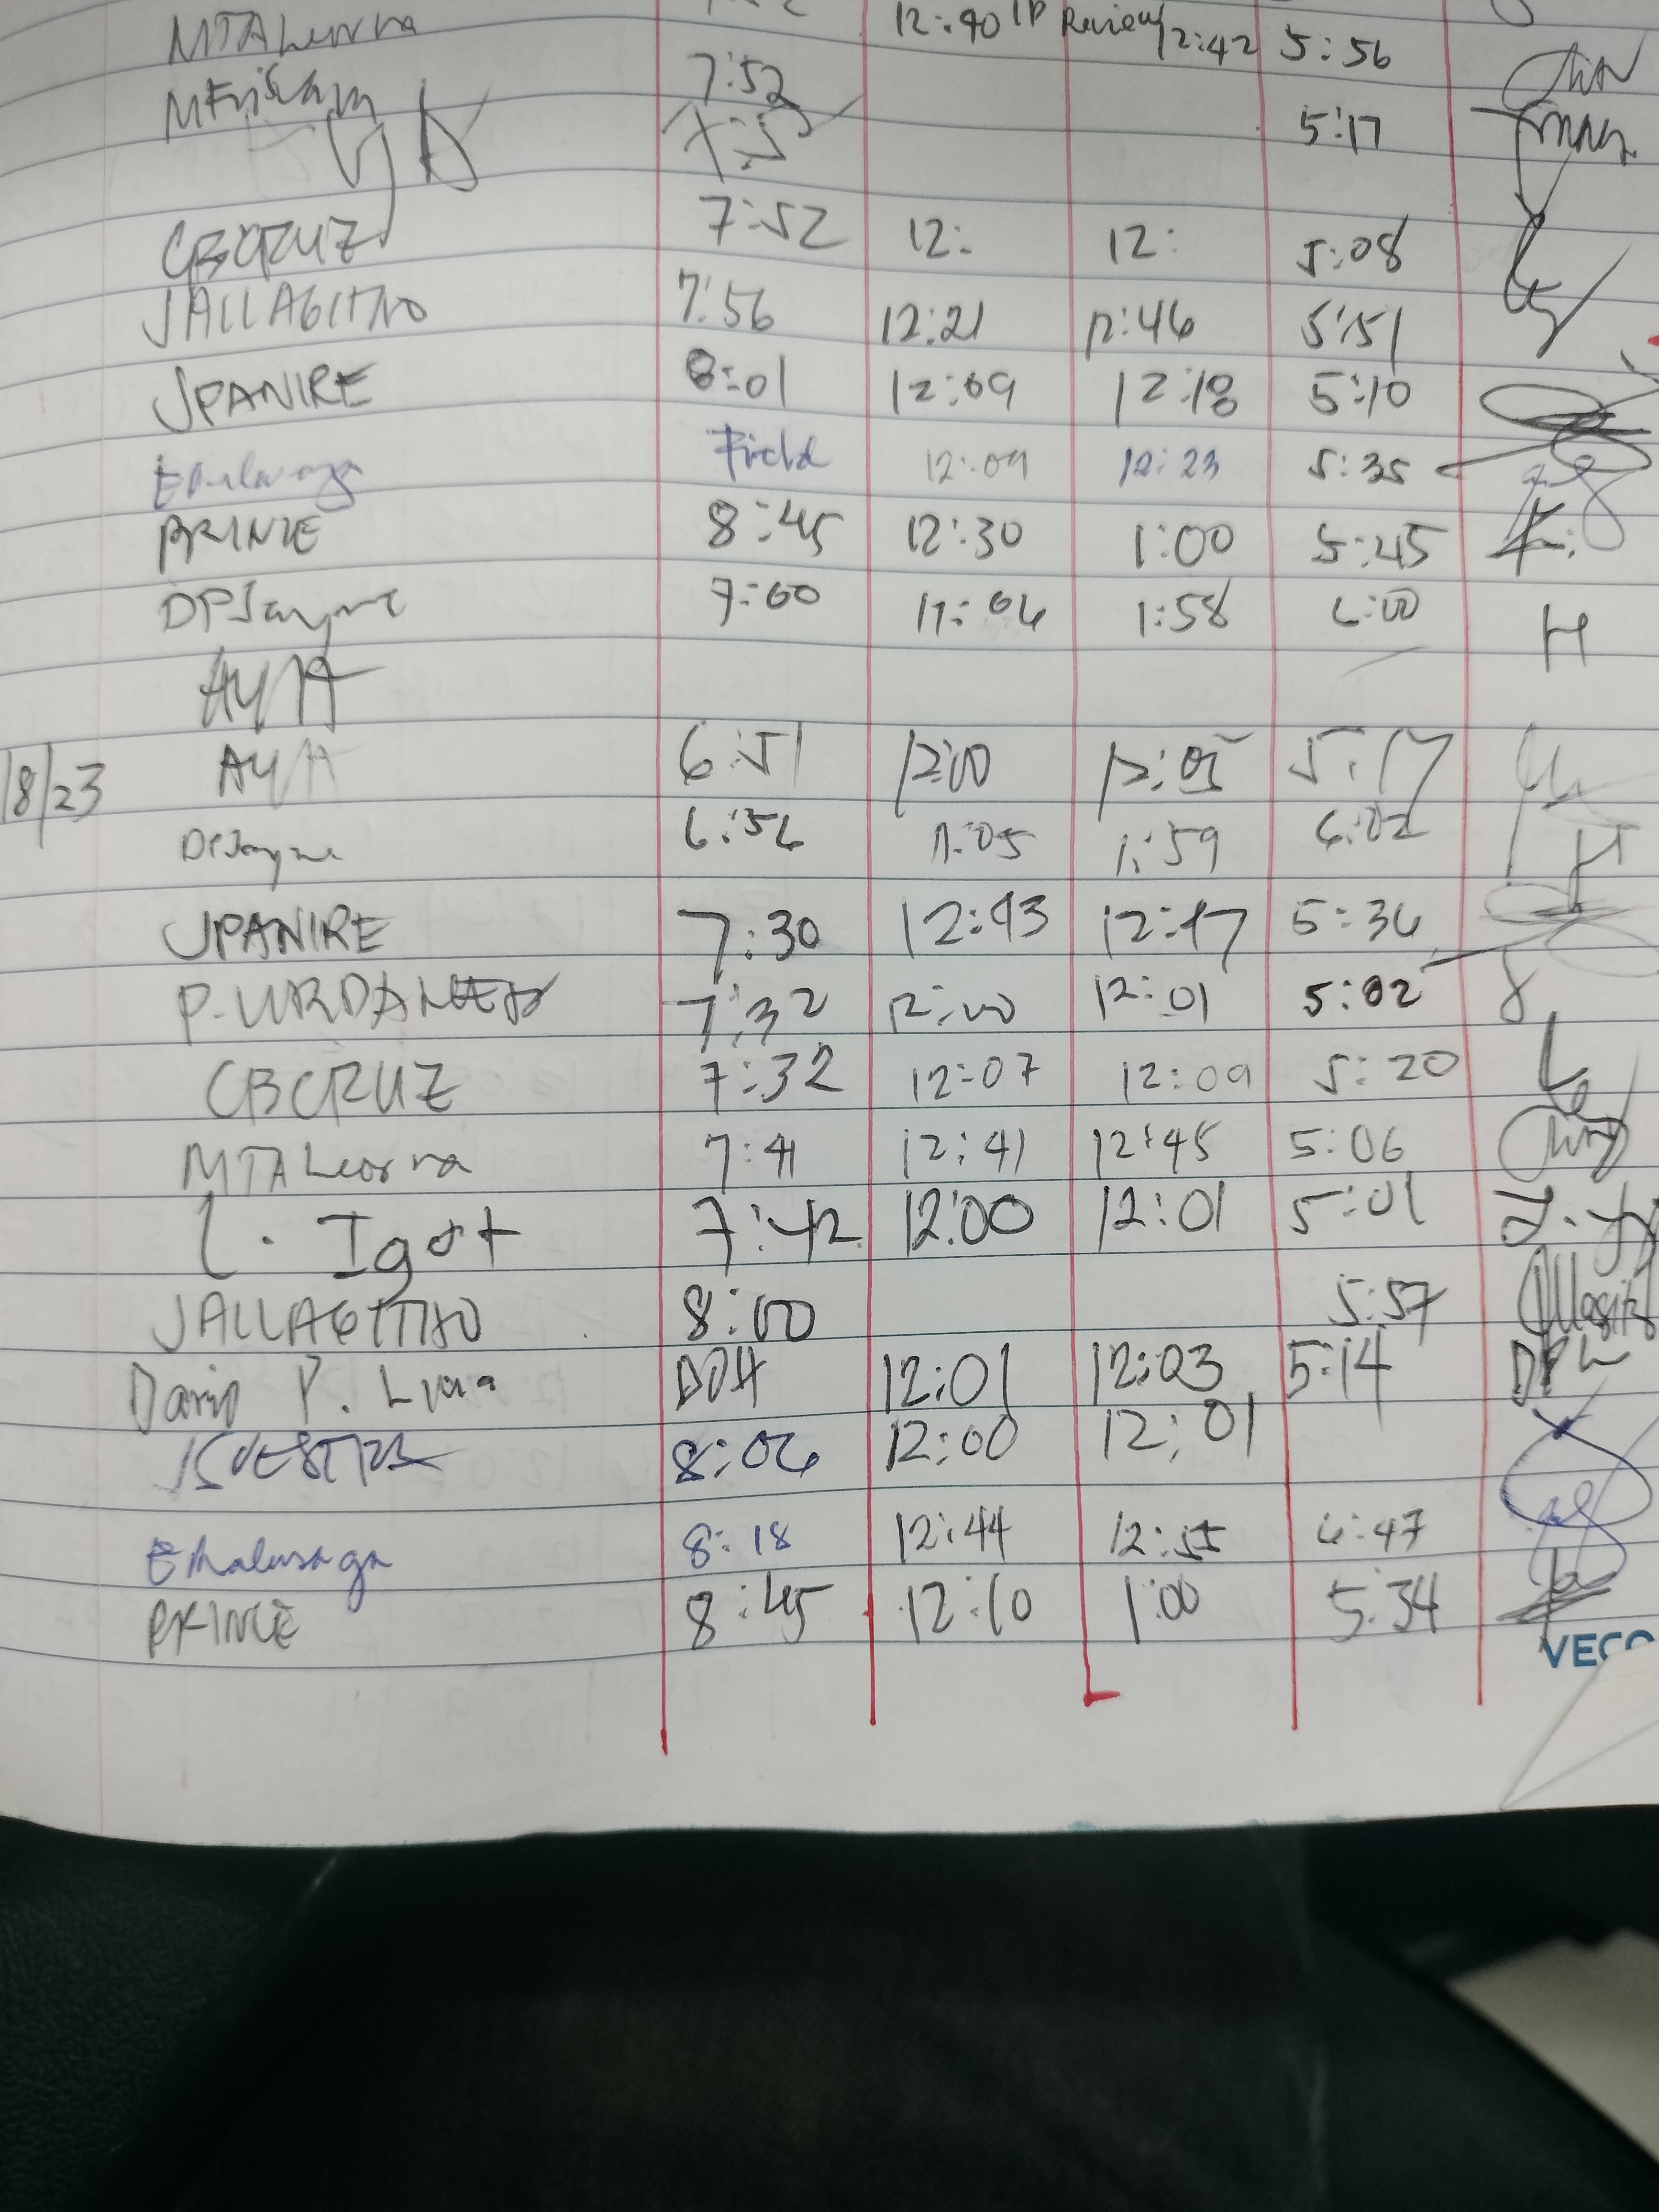 MTALeorna 12:40 IP Review 12:42 5:56
7:52 5:17
CBCRUZ 7:52 12: 12: 5:08
JALLAGITNO 7:56 12:21 12:46 5:51
JPANIRE 8:01 12:09 12:18 5:10
Emalunaga Field 12:09 12:23 5:35
PRINCE 8:45 12:30 1:00 5:45
DPJayme 7:00 11:06 1:58 6:00 H
AY/A
18/23 AY/A 6:51 12:00 12:05 5:17
DPJayme 6:56 1:59 6:02 H
JPANIRE 7:30 12:43 12:47 5:36
P. URDANETA 7:32 12:00 12:01 5:02
CBCRUZ 7:32 12:07 12:09 5:20
MTALeorna 7:41 12:41 12:45 5:06
L. Igot 7:42 12:00 12:01 5:01
JALLAGITNO 8:00 5:57
Dario P. Luna 12:01 12:03 5:14 DPL
8:06 12:00 12:01
Emalunaga 8:18 12:44 12:55 6:47
PRINCE 8:45 12:10 1:00 5:34
VECO